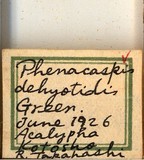 Phenacaspis
dehyotidis
Green.
June 1926
Acalypha
Kotosho
R. Takahashi.